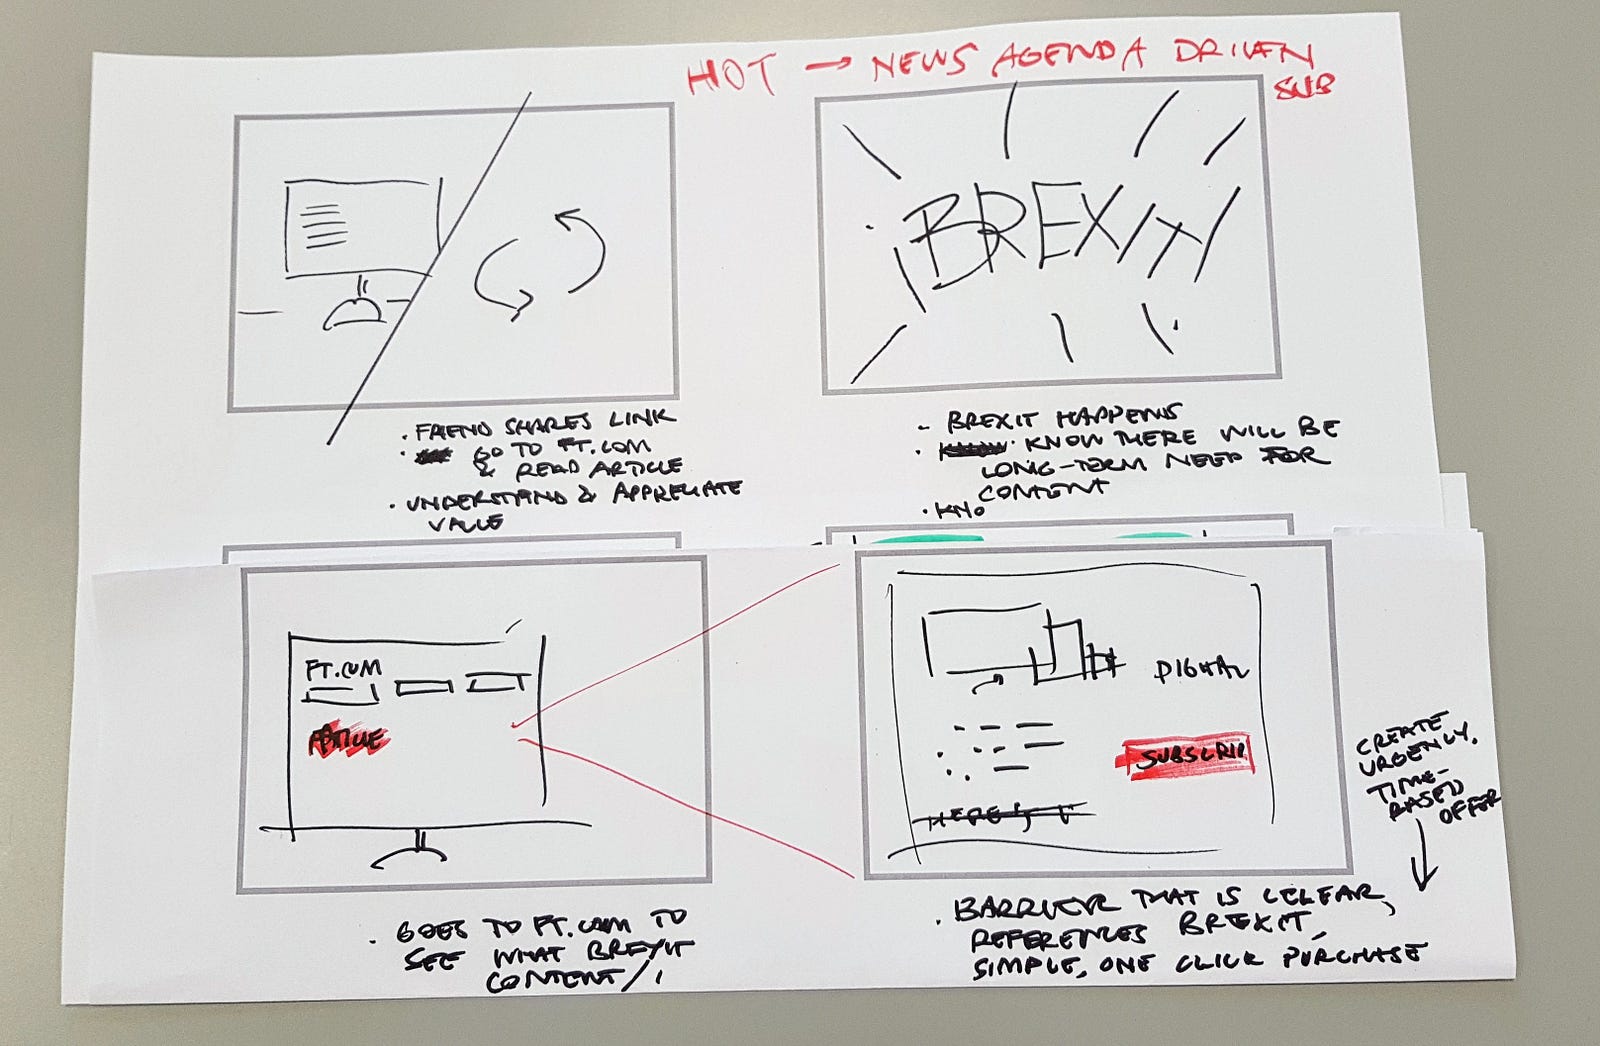 HOT → NEWS AGENDA DRIVEN
SUB
BREXIT!
· FRIEND SHARES LINK
· GO TO FT.COM
& READ ARTICLE
· UNDERSTAND & APPRECIATE
VALUE
- BREXIT HAPPENS
· KNOW THERE WILL BE
LONG-TERM NEED FOR
CONTENT
· KNO
FT.COM
ARTICLE
DIGITAL
SUBSCRIB
CREATE
URGENCY.
TIME-
BASED
OFFER
· GOES TO FT.COM TO
SEE WHAT BREXIT
CONTENT/
· BARRIER THAT IS CLEAR,
REFERENCES BREXIT,
SIMPLE, ONE CLICK PURCHASE